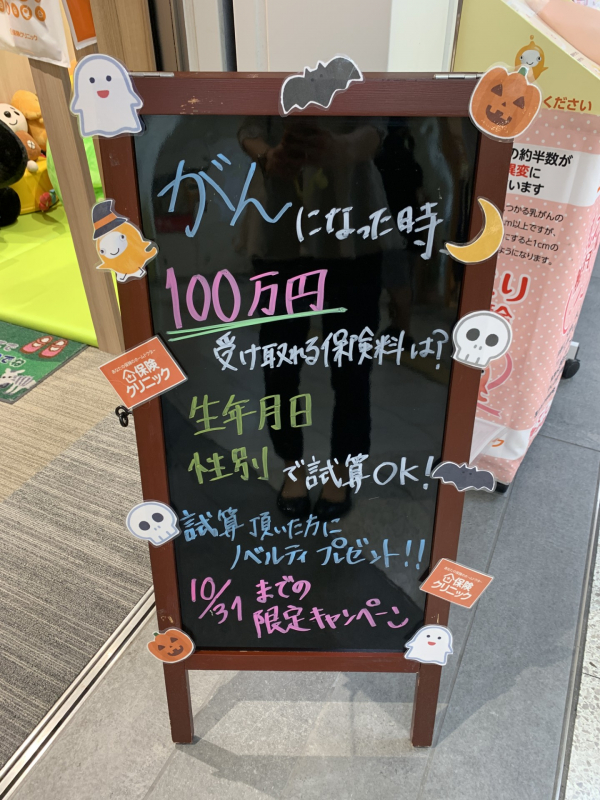 がんになった時
100万円
受け取れる保険料は?
生年月日
性別で試算OK!
試算頂いた方に
ノベルティプレゼント!!
10/31までの
限定キャンペーン
保険
クリニック
保険
クリニック
ください
の約半数が
異変に
います
つかる乳がんの
m以上ですが、
にすると1cmの
ようになります。